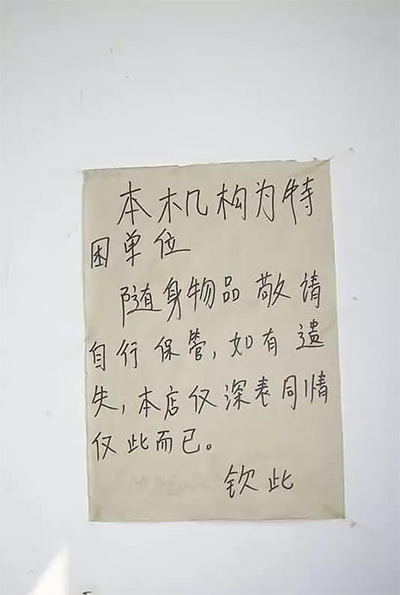 本机构为特
困单位
随身物品敬请
自行保管,如有遗
失,本店仅深表同情
仅此而已。
钦此